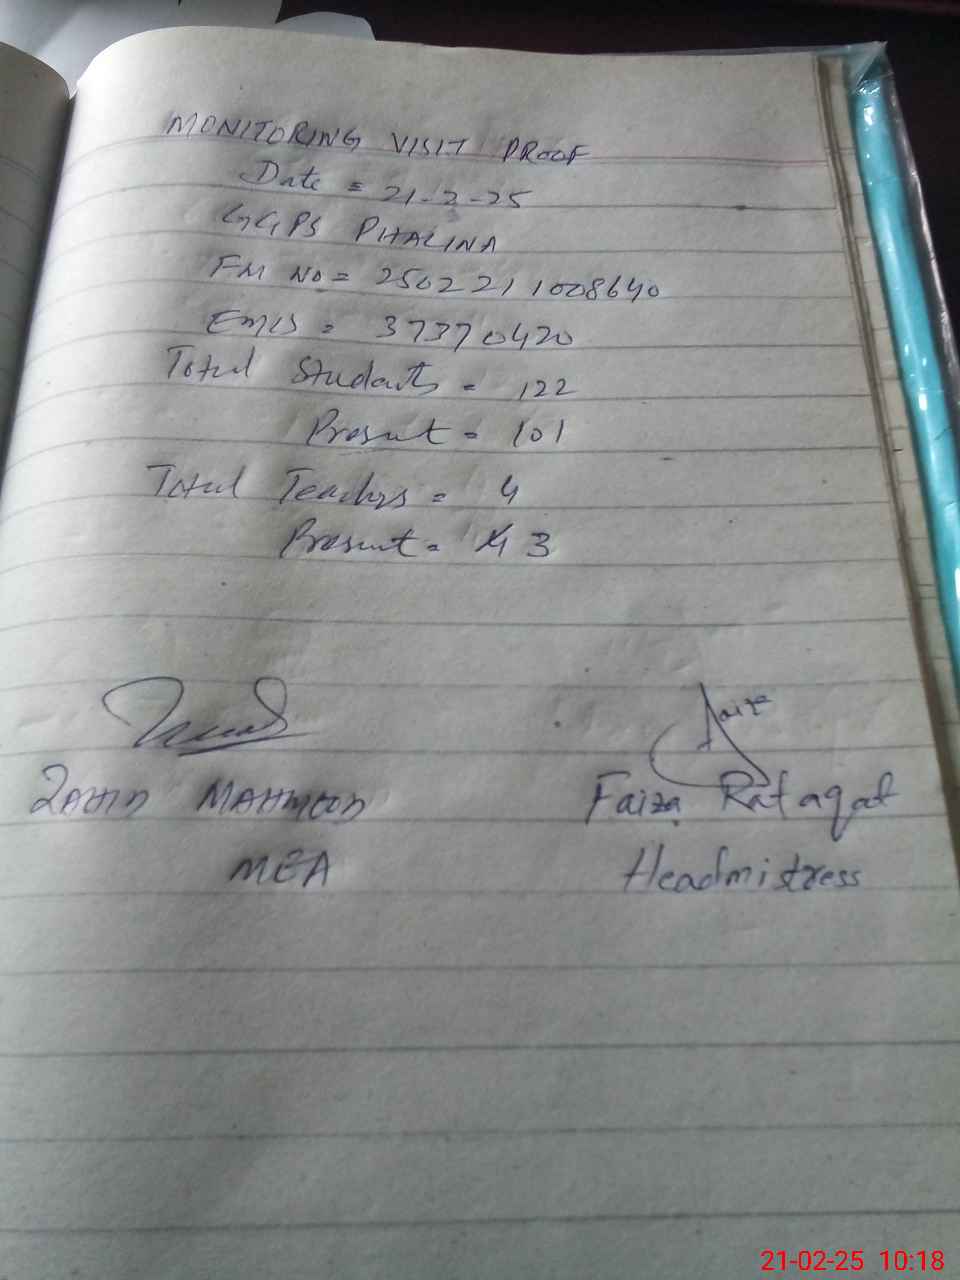 MONITORING VISIT PROOF
Date = 21-2-25
GGPS PHALINA
FM NO = 2502211008640
EMIS = 37370420
Total Students = 122
Present = 101
Total Teachers = 4
Present = 4 3
Faiza
ZAHID MAHMOOD
Faiza Rafaqat
MEA
Headmistress
21-02-25 10:18